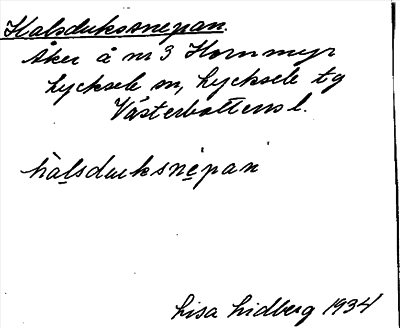 Halsduksnepan.
Åker å nr 3 Hornmyr
Lycksele sn, Lycksele tg
Västerbottens l.
halsduksnepan
Lisa Lidberg 1934